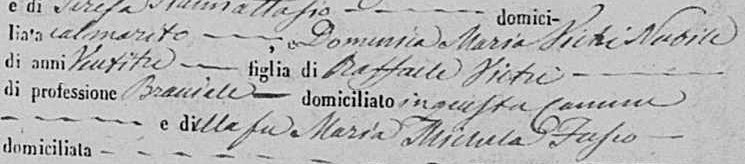 e di Teresa domici-
liata col marito, e Domenica Maria Vietri Nubile
di anni Ventitre figlia di Raffaele Vietri
di professione Bracciale domiciliato in questa Comune
e di lla fu Maria Michela Fusco
domiciliata